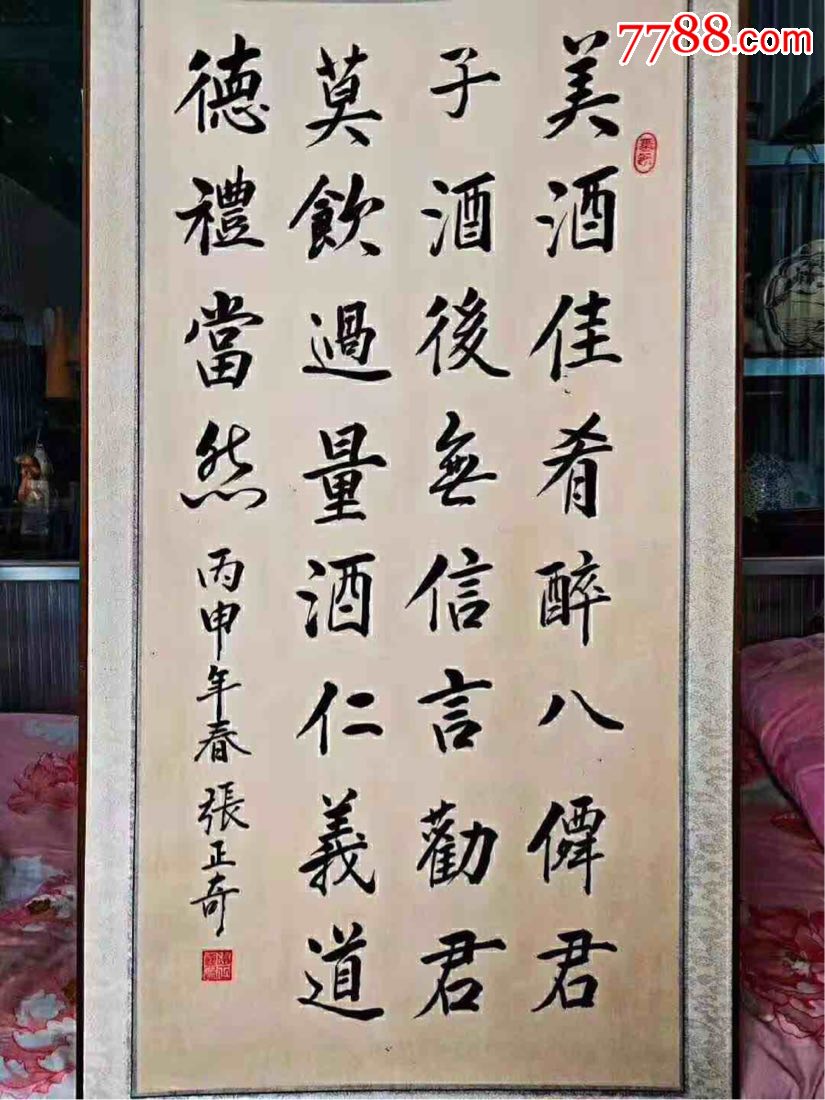 7788.com
美酒佳肴醉八僊君
子酒後無信言勸君
莫飲過量酒仁義道
德禮當然
丙申年春張正奇